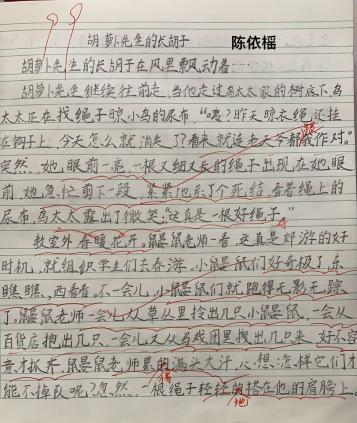 胡萝卜先生的长胡子 陈依榣
胡萝卜先生的长胡子在风里飘动着……
胡萝卜先生继续往前走,当他走过鸟太太家的树底下,鸟
太太正在找绳子晾小鸟的尿布,“咦?昨天晾衣绳还挂
在钩子上,今天怎么就消失了?看来就连老天爷都跟我作对。”
突然,她眼前一亮,一根又细又长的绳子出现在她眼
前,她急忙剪下一段,紧紧地系了个死结,看着绳上的
尿布,鸟太太露出了微笑:“这真是一根好绳子。”
教室外春暖花开。鼹鼠老师一看,这真是郊游的好
时机,就组织学生们去春游。小鼹鼠们好奇极了,东
瞧瞧,西看看。不一会儿,小鼹鼠们就跑得无影无踪
了。鼹鼠老师一会儿从草丛里拎出几只小鼹鼠,一会从
百货店抱出几只,一会儿又从马戏团里拽出几只来,好不容
易才抓齐,鼹鼠老师累的得满头大汗,心想:怎样它们才
能不掉队呢?忽然,一根绳子轻轻的地搭在他的肩膀上。